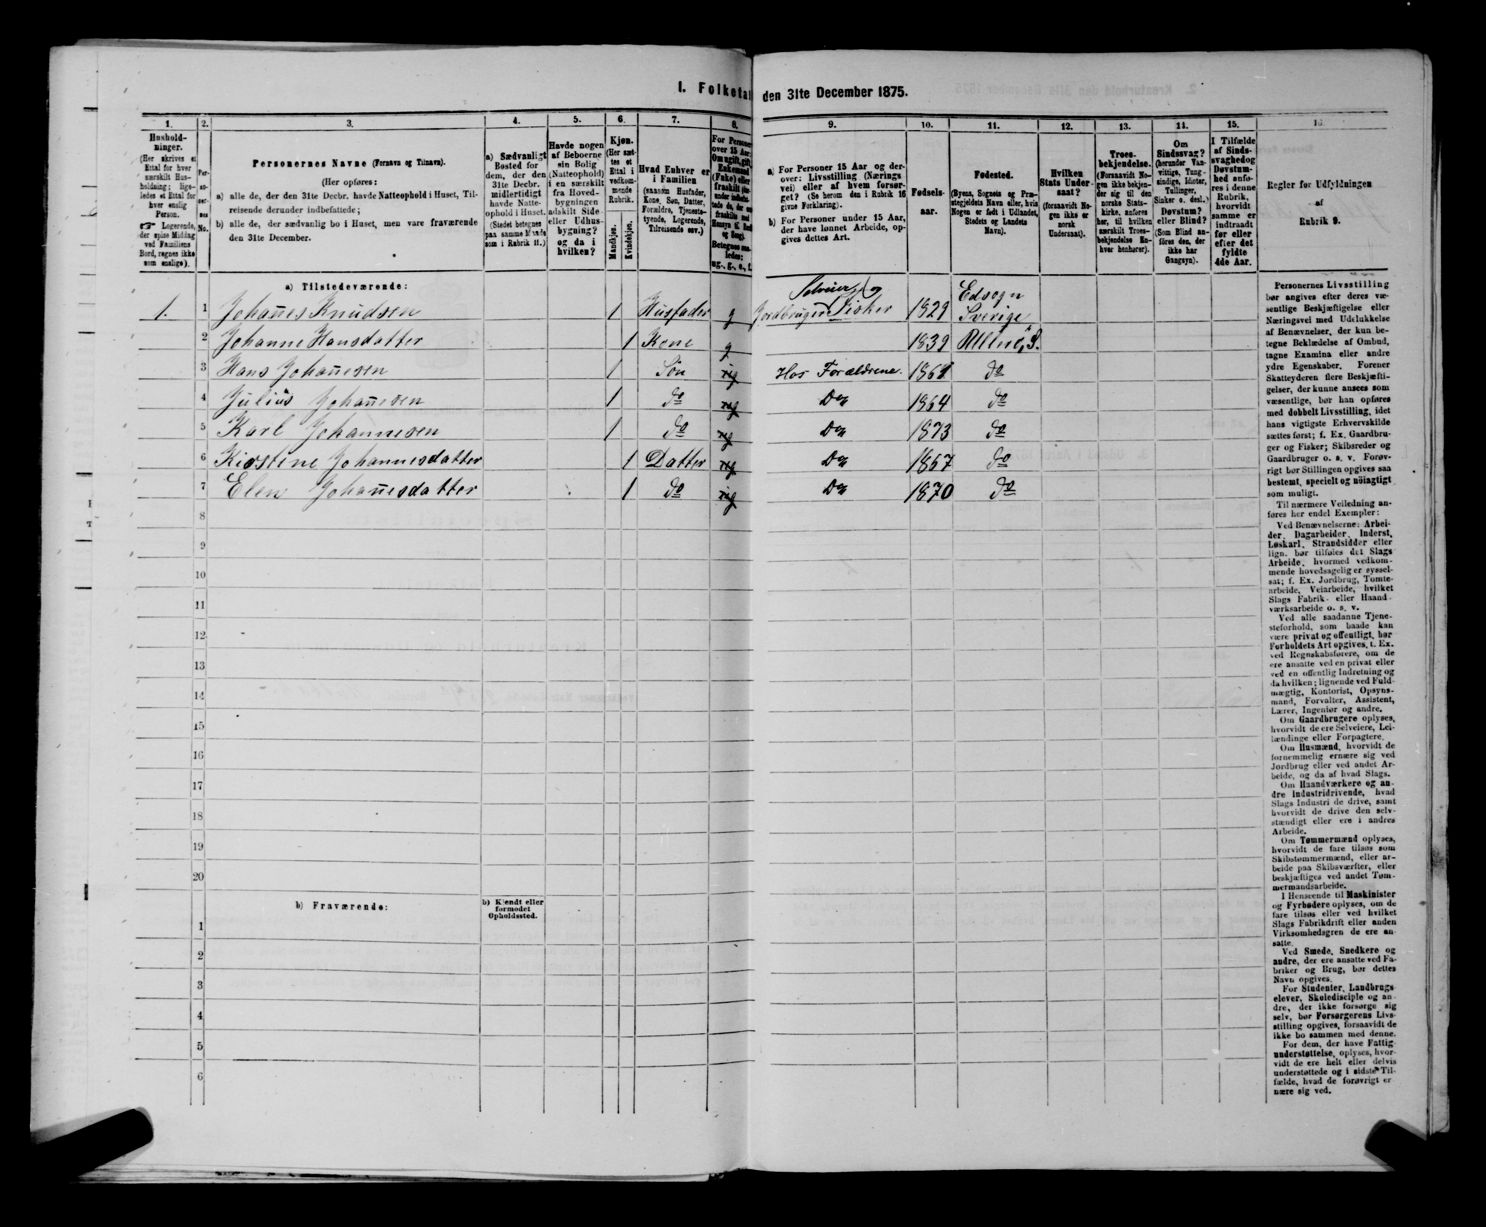 I. Folketal den 31te December 1875.
1. 2. 3. 4. 5. 6. 7. 8. 9. 10. 11. 12. 13. 14. 15. 16.
Hushold-
ninger.
(Her skrives et
Ettal for hver
særskilt Hus-
holdning; lige-
ledes et Ettal for
hver enslig
Person.
Logerende,
der spise Middag
ved Familiens
Bord, regnes ikke
som enslige).
Per-
so-
ner-
nes
No.
Personernes Navne (Fornavn og Tilnavn).
(Her opføres:
a) alle de, der den 31te Decbr. havde Natteophold i Huset, Til-
reisende derunder indbefattede;
b) alle de, der sædvanlig bo i Huset, men vare fraværende
den 31te December.
a) Sædvanligt
Bosted for
dem, der den
31te Decbr.
midlertidigt
havde Natte-
ophold i Huset.
(Stedet betegnes
paa samme Maade
som i Rubrik 11.)
Havde nogen
af Beboerne
sin Bolig
(Natteophold)
i en særskilt
fra Hoved-
bygningen
adskilt Side-
eller Udhus-
bygning?
og da i
hvilken?
Kjøn.
(Her sæt-
tes et
Ettal i
vedkom-
mende
Rubrik.
Mandkjøn.
Kvindekjøn.
Hvad Enhver er
i Familien
(saasom Husfader,
Kone, Søn, Datter,
Forældre, Tjeneste-
tyende, Logerende,
Tilreisende osv.)
For Personer
over 15 Aar:
Om ugift, gift,
Enkemand
(Enke) eller
fraskilt
a) For Personer 15 Aar og der-
over: Livsstilling (Nærings
vei) eller af hvem forsør-
get? (Se herom den i Rubrik 16
givne Forklaring).
b) For Personer under 15 Aar,
der have lønnet Arbeide, op-
gives dettes Art.
Fødsels-
aar.
Fødested.
(Byens, Sognets og Præ-
stegjeldets Navn eller, hvis
Nogen er født i Udlandet,
Stedets og Landets
Navn).
Hvilken
Stats Under-
saat?
(forsaavidt No-
gen ikke er
norsk
Undersaat).
Troes-
bekjendelse.
(Forsaavidt No-
gen ikke bekjen-
der sig til den
norske Stats-
kirke, anføres
her, til hvilken
særskilt Troes-
bekjendelse En-
hver henhører).
Om
Sindssvag?
(herunder Van-
vittige, Tung-
sindige, Idioter,
Tullinger,
Sinker o. desl.)
Døvstum?
eller Blind?
(Som Blind an-
føres den, der
ikke har
Gangsyn).
I Tilfælde
af Sinds-
svaghed og
Døvstum-
hed anfø-
res i denne
Rubrik,
hvorvidt
samme er
indtraadt
før eller
efter det
fyldte
4de Aar.
Regler for Udfyldningen
af
Rubrik 9.
a) Tilstedeværende:
1. 1 Johannes Knudsen 1 Husfader g Selveier og Jordbruger Fisker 1829 Edsogn Sverige
2 Johanne Hansdatter 1 Kone g 1839
3 Hans Johannesen 1 Søn ug Hos Forældrene. 1861 do
4 Julius Johannesen 1 do ug Do 1864 do
5 Karl Johannesen 1 do ug Do 1873 do
6 Kirstine Johannesdatter 1 Datter ug Do 1867 do
7 Elen Johannesdatter 1 do ug Do 1870 do
8
9
10
11
12
13
14
15
16
17
18
19
20
b) Fraværende:
b) Kjendt eller
formodet
Opholdssted.
1
2
3
4
5
6
Personernes Livsstilling
bør angives efter deres væ-
sentlige Beskjæftigelse eller
Næringsvei med Udelukkelse
af Benævnelser, der kun be-
tegne Beklædelse af Ombud,
tagne Examina eller andre
ydre Egenskaber. Forener
Skatteyderen flere Beskjæfti-
gelser, der kunne ansees som
væsentlige, bør han opføres
med dobbelt Livsstilling, idet
hans vigtigste Erhvervskilde
sættes først; f. Ex. Gaardbru-
ger og Fisker; Skibsreder og
Gaardbruger o. s. v. Forøv-
rigt bør Stillingen opgives saa
bestemt, specielt og nöiagtigt
som muligt.
Til nærmere Veiledning an-
føres her endel Exempler:
Ved Benævnelserne: Arbei-
der, Dagarbeider, Inderst,
Løskarl, Strandsidder eller
lign. bør tilføies det Slags
Arbeide, hvormed vedkom-
mende hovedsagelig er syssel-
sat; f. Ex. Jordbrug, Tomte-
arbeide, Veiarbeide, hvilket
Slags Fabrik- eller Haand-
værksarbeide o. s. v.
Ved alle saadanne Tjene-
steforhold, som baade kan
være privat og offentligt, bør
Forholdets Art opgives, t. Ex.
ved Regnskabsførere, om de
ere ansatte ved en privat eller
ved en offentlig Indretning og
da hvilken; lignende ved Fuld-
mægtig, Kontorist, Opsyns-
mand, Forvalter, Assistent,
Lærer, Ingeniør og andre.
Om Gaardbrugere oplyses,
hvorvidt de ere Selveiere, Lei-
lændinge eller Forpagtere.
Om Husmænd, hvorvidt de
fornemmelig ernære sig ved
Jordbrug eller ved andet Ar-
beide, og da af hvad Slags.
Om Haandværkere og an-
dre Industridrivende, hvad
Slags Industri de drive, samt
hvorvidt de drive den selv-
stændigt eller ere i andres
Arbeide.
Om Tømmermænd oplyses,
hvorvidt de fare tilsøs som
Skibstømmermænd, eller ar-
beide paa Skibsværfter, eller
beskjæftiges ved andet Tøm-
mermandsarbeide.
I Henseende til Maskinister
og Fyrbødere oplyses, om de
fare tilsøs eller ved hvilket
Slags Fabrikdrift eller anden
Virksomhedsgren de ere an-
satte.
Ved Smede, Snedkere og
andre, der ere ansatte ved Fa-
briker og Brug, bør dettes
Navn opgives.
For Studenter, Landbrugs
elever, Skoledisciple og an-
dre, der ikke forsørge sig
selv, bør Forsørgerens Livs-
stilling opgives, forsaavidt de
ikke bo sammen med denne.
For dem, der have Fattig-
understøttelse, oplyses, hvor-
vidt de ere helt eller delvis
understøttede og i sidste Til-
fælde, hvad de forøvrigt er-
nære sig ved.